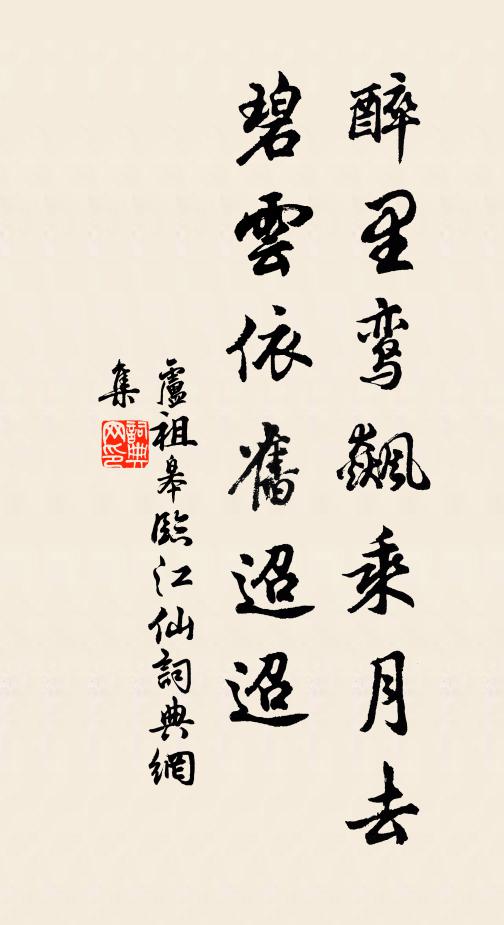 醉里鸾飙乘月去
碧雲依舊迢迢
盧祖皋臨江仙詞典網
集
詞典網印